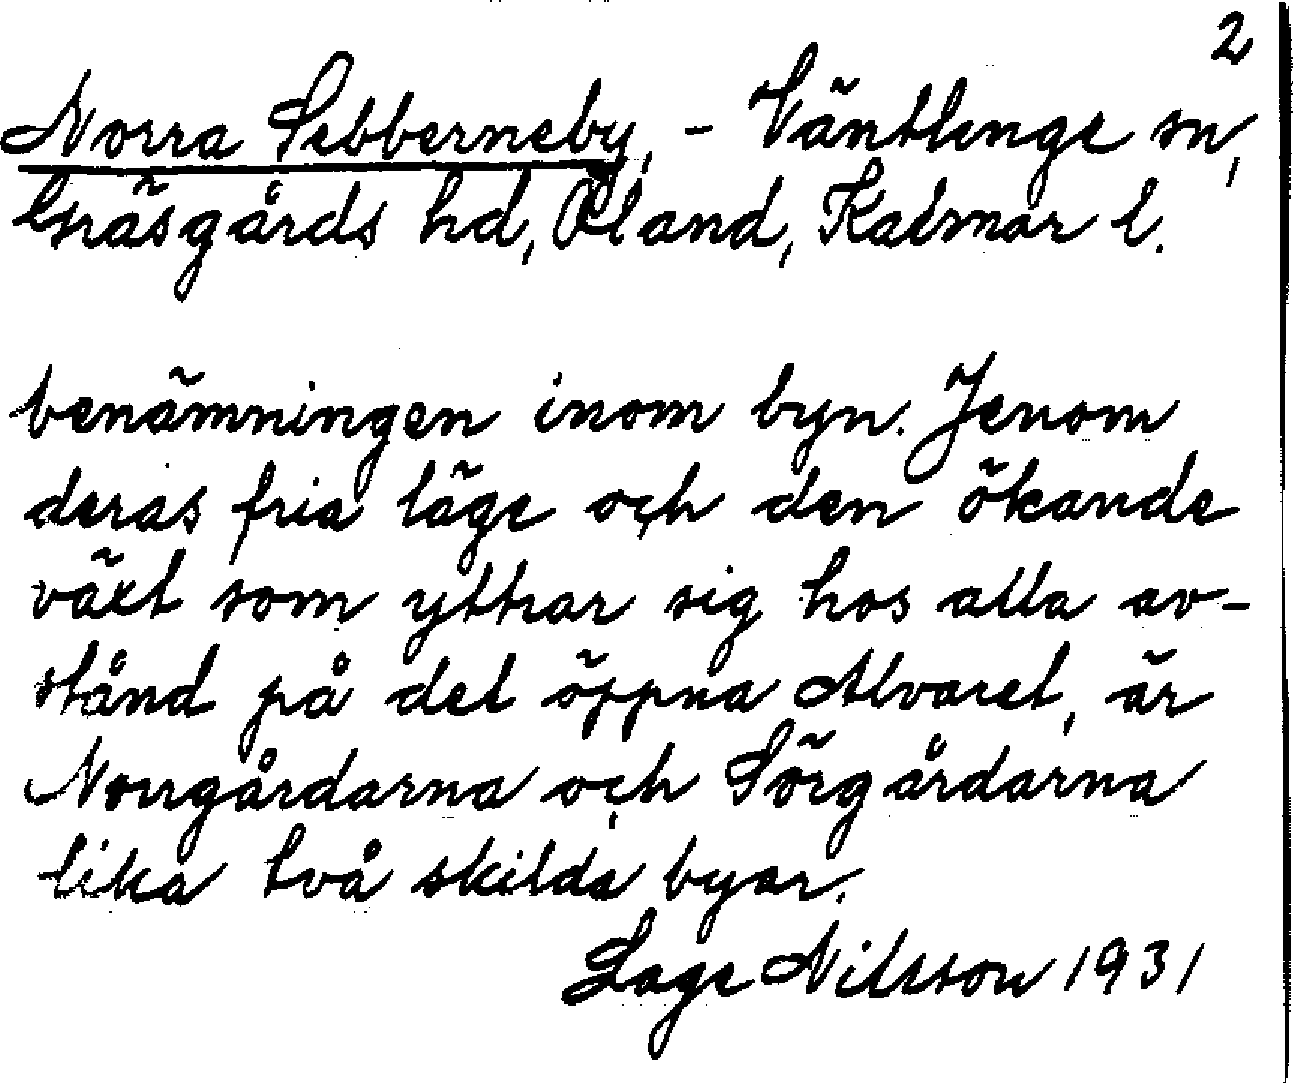 2
Norra Sebberneby, - Väntlinge sn,
Gräsgårds hd, Öland, Kalmar l.
benämningen inom byn. Genom
deras fria läge och den ökande
växt som yttrar sig hos alla av-
stånd på det öppna Alvaret, är
Norrgårdarna och Sörgårdarna
lika två skilda byar.
Lage Nilsson 1931